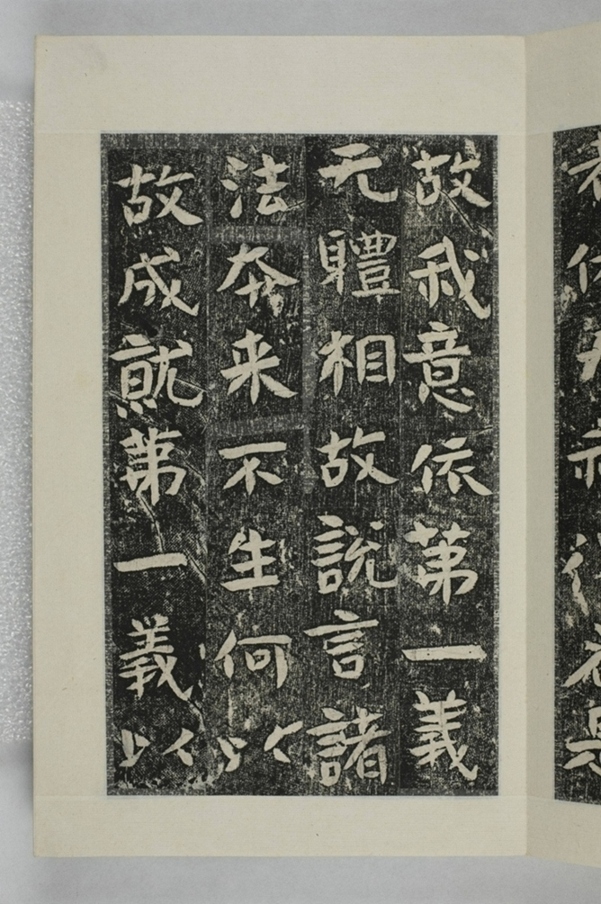 故我意依苐一義
无軆相故說言諸
法夲来不生何以
故成就苐一義以